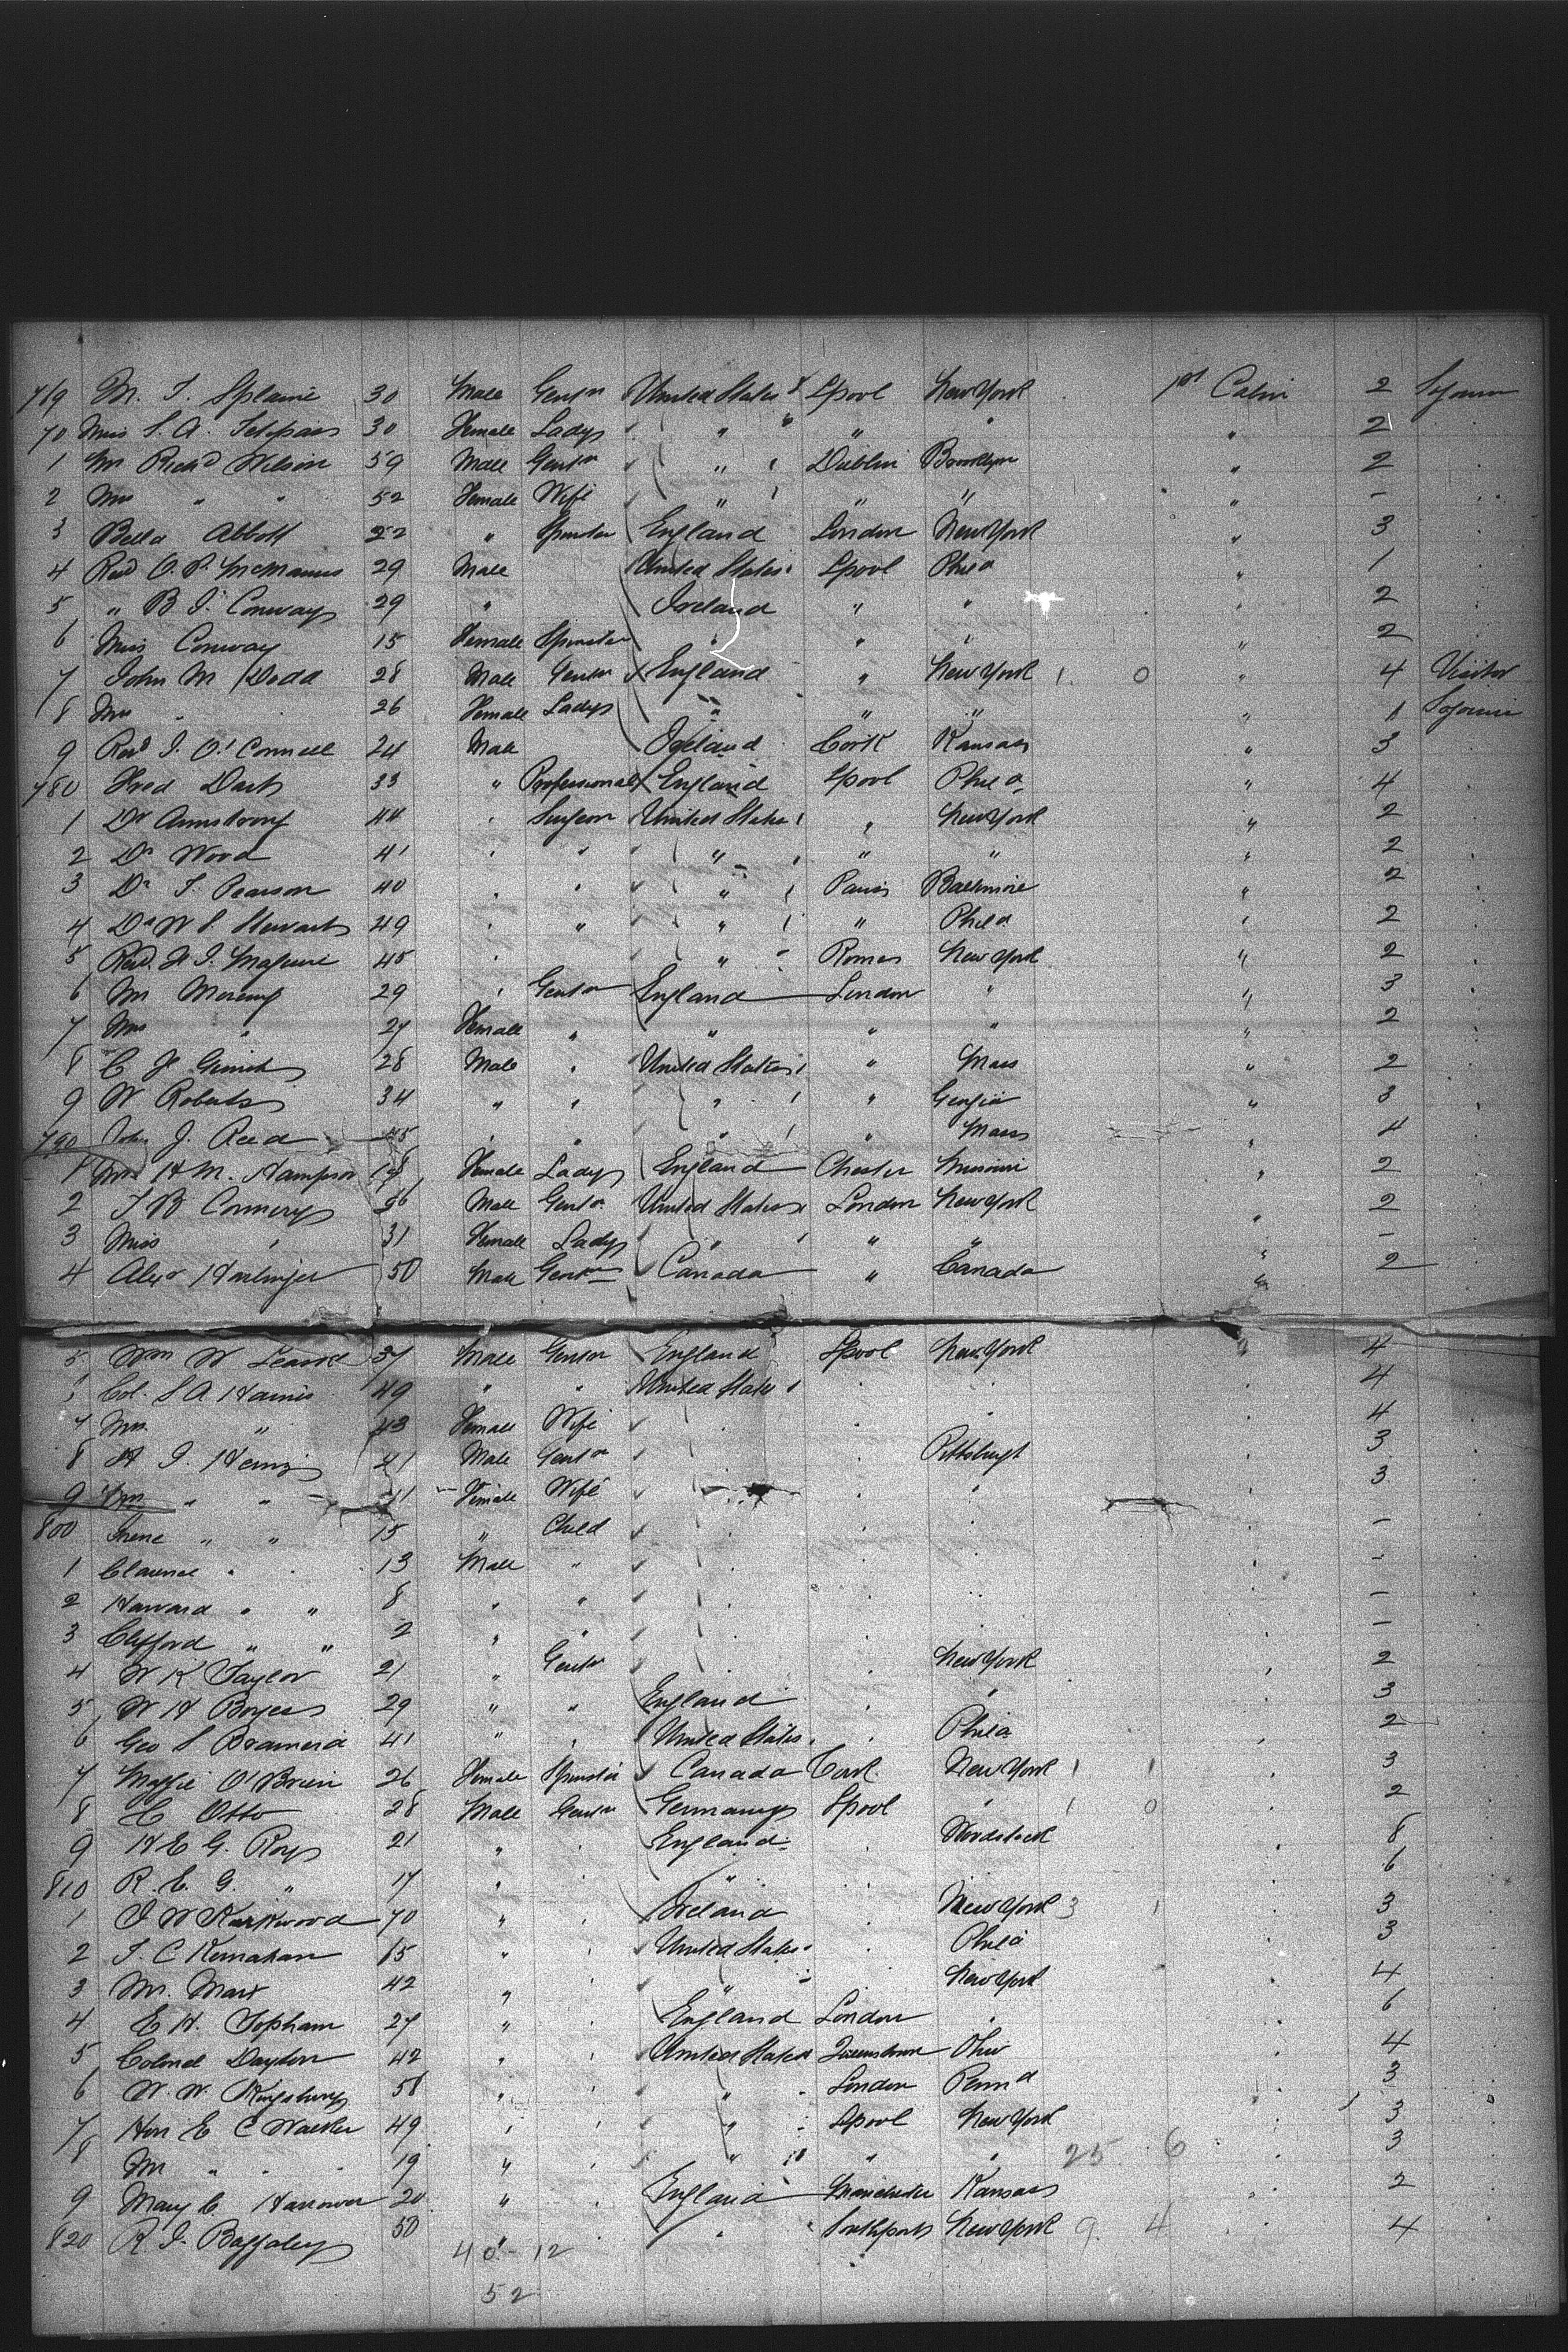 769 M. J. Splaine 30 Male Gentn United States Lpool New York 1st Cabin 2 Sojourn
70 Miss S. A. 30 Female Lady " " " " 2
1 Mr Richd Wilson 59 Male Gentn " Dublin Brooklyn " 2
2 Mrs " " 52 Female Wife " " " " -
3 Bella Abbott 22 " Spinster England London New York " 3
4 Revd O. P. McManus 29 Male United States Lpool Phila " 1
5 " B. J. Conway 29 " Ireland " " " 2
6 Miss Conway 15 Female Spinster " " " " 2
7 John M Dodd 28 Male Gentn England " New York 1 0 " 4 Visitor
8 Mrs " 26 Female Lady " " " " 1 Sojourn
9 Revd J. O'Connell 24 Male Ireland Cork Kansas " 3
780 Fred Dart 33 " Professional England Lpool Phila " 4
1 Dr Armstrong 44 " Surgeon United States " New York " 2
2 Dr Wood 41 " " " " " " 2
3 Dr J. Pearson 40 " " " Paris Baltimore " 2
4 Dr W S. Stewart 49 " " " " Phila " 2
5 Revd. H J. Maguire 45 " " Rome New York " 2
6 Mr 29 " Gentn England London " " 3
7 Mrs " 27 Female " " " " " 2
8 C H 28 Male " United States " Mass " 2
9 W Roberts 34 " " " " Georgia " 3
790 John J. Reed 45 " " " " Mass " 4
1 Mrs H. M. Hampson 18 Female Lady England Chester Missouri " 2
2 T B Connery Male Gentn United States London New York " 2
3 Miss " 31 Female Lady " " " " -
4 Alexr 50 Male Gentn Canada " Canada " 2
5 Wm W Leask 37 Male Gentn England Lpool New York 4
Col. S A Harris 49 " " United States " " " 4
7 Mrs. " 43 Female Wife " " " 4
8 H J. Heinz 41 Male Gentn " Pittsburgh " 3
9 Mrs " " 41 Female Wife " " " 3
800 Irene " " 15 " Child " " " -
1 Clarence " " 13 Male " " " -
2 Howard " " 8 " " " " -
3 Clifford " " 2 " " " " -
4 W K Taylor 21 " Gentn " New York " 2
5 W H Boyes 29 " " England " " " 3
6 Geo S 41 " " United States " Phila " 2
7 Maggie O'Brien 26 Female Spinster Canada Cork New York 1 1 " 3
8 C Otto 28 Male Gentn Germany Lpool " 1 0 " 2
9 H E G. Roy 21 " " England " Woodstock " 8
810 R. E. G. " 17 " " " " " 6
1 J W Kirkwood 70 " " Ireland " New York 3 1 " 3
2 J. C Kernahan " " United States " Phila " 3
3 Mr. Marx 42 " " " " New York " 4
4 E H. Topham 27 " " England London " " 6
5 Colonel Dayton 42 " " United States Queenstown Ohio " 4
6 W. W. Kingsbury 58 " " " London Penna " 3
7 Hon E C Walker 49 " " " Lpool New York " 3
8 Mr " " 19 " " " " " 25 6 " 3
9 Mary C Harrower 20 " " England Manchester Kansas " 2
820 R. J. Baggaley 50 " " " Southport New York 9 4 " 4
40 - 12
52